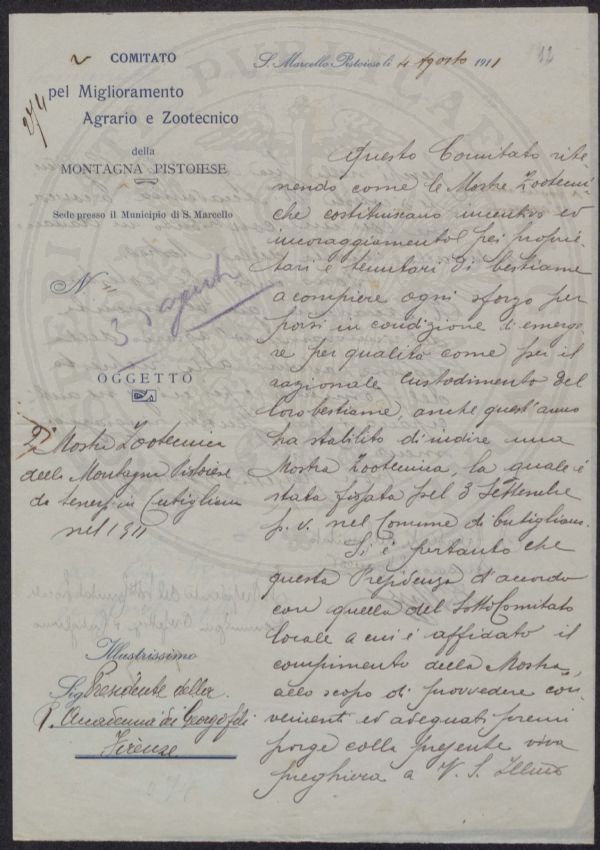 COMITATO
pel Miglioramento
Agrario e Zootecnico
della
MONTAGNA PISTOIESE
Sede presso il Municipio di S. Marcello
N.
3 agosto
OGGETTO
2a Mostra Zootecnica
della Montagna Pistoiese
da tenersi in Cutigliano
nel 1911
Illustrissimo
Sig Presidente della
R. Accademia dei Georgofili
Firenze
12
S. Marcello Pistoiese li 4 Agosto 1911
Questo Comitato rite-
nendo come le Mostre Zootecni
che costituiscano incentivo ed
incoraggiamento pei proprie-
tari e tenutari di bestiame
a compiere ogni sforzo per
porsi in condizione di emerge-
re per qualità come per il
razionale custodimento del
loro bestiame, anche quest'anno
ha stabilito di indire una
Mostra Zootecnica, la quale è
stata fissata pel 3 Settembre
p. v. nel Comune di Cutigliano.
Si è pertanto che
questa Presidenza d'accordo
con quella del Sotto Comitato
locale a cui è affidato il
compimento della Mostra,
allo scopo di provvedere con-
venienti ed adeguati premi
porge colla presente viva
preghiera a V. S. Illma